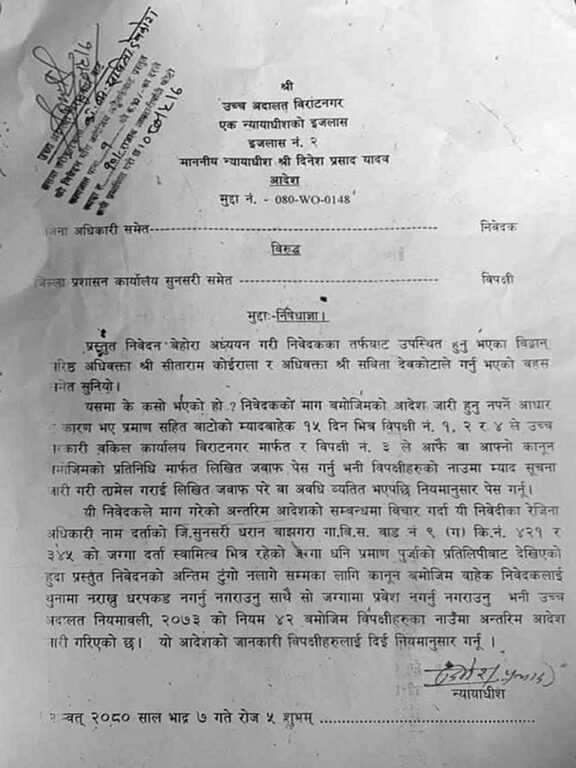 श्री
उच्च अदालत विराटनगर
एक न्यायाधीशको इजलास
इजलास नं. २
माननीय न्यायाधीश श्री दिनेश प्रसाद यादव
आदेश
मुद्दा नं. - 080-WO-0148
जिना अधिकारी समेत---------------------------------------------------------- निवेदक
विरुद्ध
जिल्ला प्रशासन कार्यालय सुनसरी समेत ---------------------------------------- विपक्षी
मुद्दाः-निषेधाज्ञा।
प्रस्तुत निवेदन बेहोरा अध्ययन गरी निवेदकका तर्फबाट उपस्थित हुनु भएका विद्वान्
रिष्ठ अधिवक्ता श्री सीताराम कोईराला र अधिवक्ता श्री सबिता देवकोटाले गर्नु भएको बहस
मेत सुनियो।
यसमा के कसो भएको हो ? निवेदकको माग बमोजिमको आदेश जारी हुनु नपर्ने आधार
कारण भए प्रमाण सहित बाटोको म्यादबाहेक १५ दिन भित्र विपक्षी नं. १, २ र ४ ले उच्च
रकारी वकिल कार्यालय विराटनगर मार्फत र विपक्षी नं. ३ ले आफै वा आफ्नो कानून
मोजिमको प्रतिनिधि मार्फत लिखित जवाफ पेस गर्नु भनी विपक्षीहरुको नाउमा म्याद सूचना
जारी गरी तामेल गराई लिखित जवाफ परे वा अवधि व्यतित भएपछि नियमानुसार पेस गर्नू।
यी निवेदकले माग गरेको अन्तरिम आदेशको सम्बन्धमा विचार गर्दा यी निवेदीका रेजिना
अधिकारी नाम दर्ताको जि.सुनसरी धरान बाझगरा गा.वि.स. वाड नं ९ (ग) कि.नं. ४२१ र
३४५ को जग्गा दर्ता स्वामित्व भित्र रहेको जग्गा धनि प्रमाण पुर्जाको प्रतिलिपीबाट देखिएको
हुदा प्रस्तुत निवेदनको अन्तिम टुंगो नलागे सम्मका लागि कानून बमोजिम बाहेक निवेदकलाई
थुनामा नराख्नु धरपकड नगर्नु नगराउनु साथै सो जग्गामा प्रवेश नगर्नु नगराउनु भनी उच्च
अदालत नियमावली, २०७३ को नियम ४२ बमोजिम विपक्षीहरुका नाउँमा अन्तरिम आदेश
जारी गरिएको छ। यो आदेशको जानकारी विपक्षीहरुलाई दिई नियमानुसार गर्नू ।
न्यायाधीश
म्वत् २०८० साल भाद्र ७ गते रोज ५ शुभम्